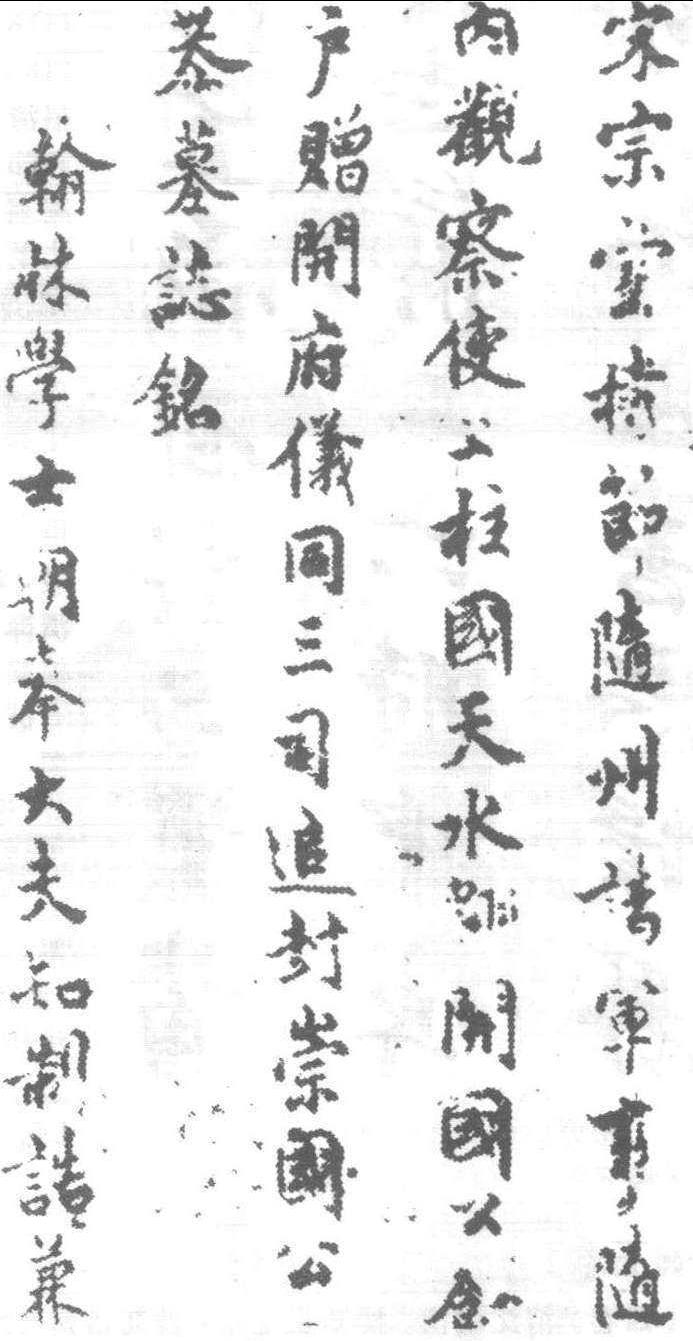 宋宗室持節隨州諸軍事隨
内觀察使上柱國天水郡開國公食
户贈開府儀同三司追封崇國公
恭墓誌銘
翰林學士朝奉大夫知制誥兼